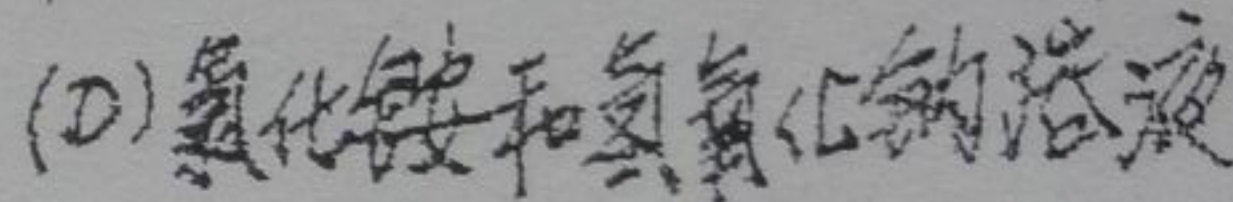 (D)氯化铵和氢氧化钠溶液